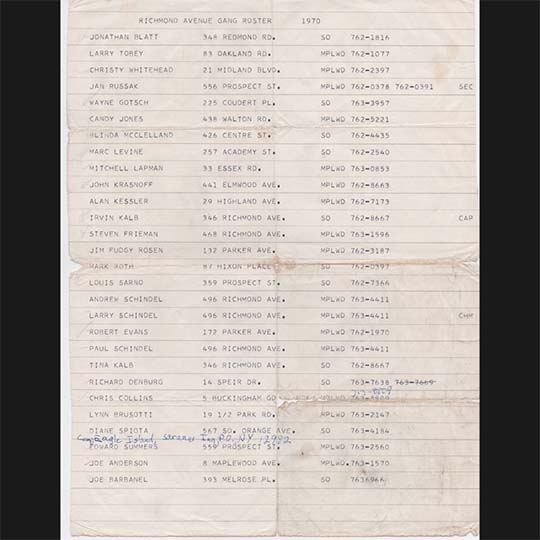 RICHMOND AVENUE GANG ROSTER 1970
JONATHAN BLATT 348 REDMOND RD. SO 762-1816
LARRY TOBEY 83 OAKLAND RD. MPLWD 762-1077
CHRISTY WHITEHEAD 21 MIDLAND BLVD. MPLWD 762-2397
JAN RUSSAK 556 PROSPECT ST. MPLWD 762-0378 762-0391 SEC
WAYNE GOTSCH 225 COUDERT PL. SO 763-3957
CANDY JONES 438 WALTON RD. MPLWD 762-5221
BLINDA MCCLELLAND 426 CENTRE ST. SO 762-4435
MARC LEVINE 257 ACADEMY ST. SO 762-2540
MITCHELL LAPMAN 33 ESSEX RD. MPLWD 763-0853
JOHN KRASNOFF 441 ELMWOOD AVE. MPLWD 762-8663
ALAN KESSLER 29 HIGHLAND AVE. MPLWD 762-7173
IRVIN KALB 346 RICHMOND AVE. SO 762-8667 CAP
STEVEN FRIEMAN 468 RICHMOND AVE. MPLWD 763-1596
JIM FUDGY ROSEN 132 PARKER AVE. MPLWD 762-3187
MARK ROTH 87 HIXON PLACE SO 762-0397
LOUIS SARNO 359 PROSPECT ST. MPLWD 762-7366
ANDREW SCHINDEL 496 RICHMOND AVE. MPLWD 763-4411
LARRY SCHINDEL 496 RICHMOND AVE. MPLWD 763-4411 CHM
ROBERT EVANS 172 PARKER AVE. MPLWD 762-1970
PAUL SCHINDEL 496 RICHMOND AVE. MPLWD 763-4411
TINA KALB 346 RICHMOND AVE. SO 762-8667
RICHARD DENBURG 14 SPEIR DR. SO 763-7638 763-7669
CHRIS COLLINS 5 BUCKINGHAM MPLWD
LYNN BRUSOTTI 19 1/2 PARK RD. MPLWD 763-2147
DIANE SPIOTA 567 SO. ORANGE AVE. SO 763-4184
Eagle Island, Saranac Inn P.O. NY 12982
EDWARD SUMMERS 559 PROSPECT ST. MPLWD 763-2560
JOE ANDERSON 8 MAPLEWOOD AVE. MPLWD.763-1570
JOE BARBANEL 393 MELROSE PL. SO 7636966